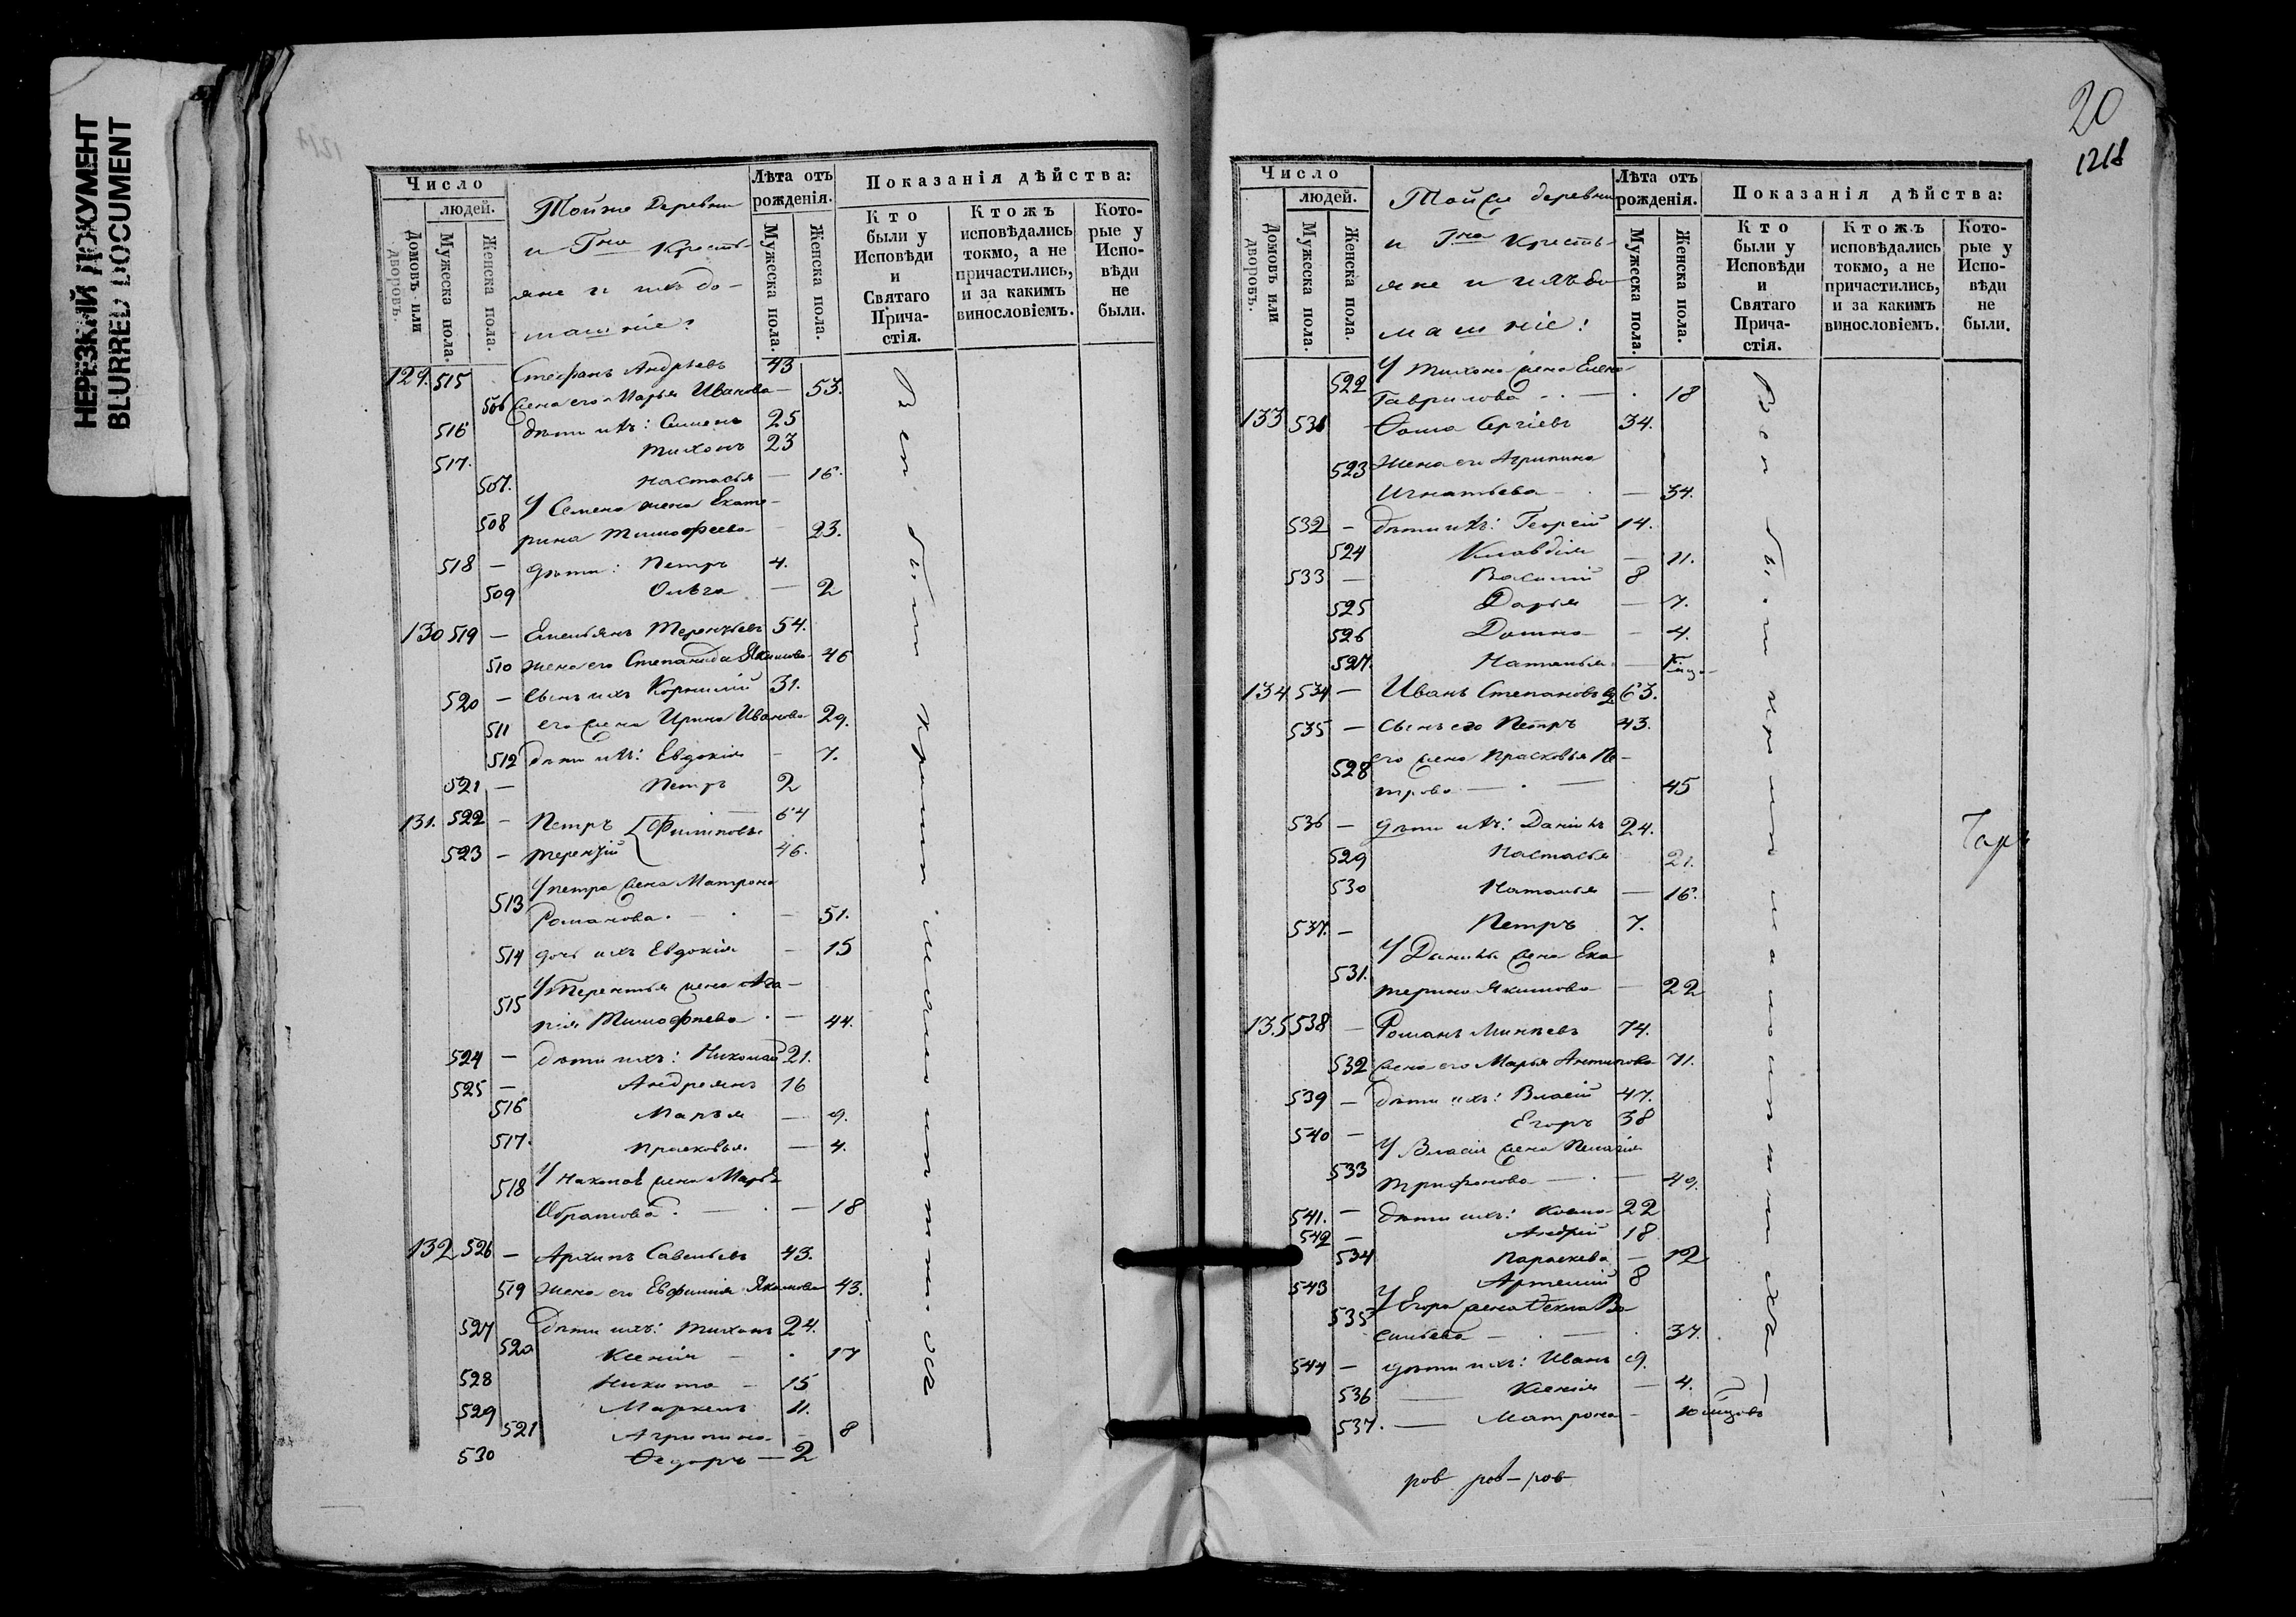 НЕРЕЗКИЙ ДОКУМЕНТ
BLURRED DOCUMENT
Число
людей.
Домовъ или дворовъ.
Мужеска пола.
Женска пола.
Тойже деревни
и Гна кресть-
яне и ихъ до-
машніе:
Лѣта отъ рожденія.
Мужеска пола.
Женска пола.
Показанія дѣйства:
Кто были у Исповѣди и Святаго Прича-стія.
Ктожъ исповѣдались токмо, а не причастились, и за какимъ винословіемъ.
Кото-рые у Испо-вѣди не были.
129. 515 Стефанъ Андрѣевъ 43
506 жена его Марья Иванова — 53.
516 дѣти ихъ: Симеонъ 25
517. Тихонъ 23
507. Настасья — 16.
508 У Семена жена Екате-
рина Тимофеева 23.
518 — дѣти: Петръ 4.
509 Ольга — 2
130 519 — Емельянъ Терентьевъ 54.
510 жена его Степанида Якимова 46
520 — сынъ ихъ Корнилій 31.
511 его жена Ирина Иванова 29.
512 дѣти ихъ: Евдокія — 7.
521 — Петръ 2
131. 522 — Петръ Филиповы 64
523 — Терентій 46.
513 У Петра жена Матрона
Романова. — 51.
514 дочь ихъ Евдокія — 15
515 У Терентья жена
Тимофѣева — 44.
524 — дѣти ихъ: Николай 21.
525 — Андреянъ 16
516 Марья — 9.
517. Прасковья — 4.
518 У Николая жена Марья
Абрамова. — 18
132 526 — Архипъ Савельевъ 43.
519 жена его Евфимія Якимова 43.
527 дѣти ихъ: Тихонъ 24.
520 Ксенія — 17
528 Никита — 15
529 Маркелъ 11.
521 Агрипина — 8
530 Ѳедоръ — 2
20
1218
Число
людей.
Домовъ или дворовъ.
Мужеска пола.
Женска пола.
Тойже деревни
и Гна кресть-
яне и ихъ до-
машніе:
Лѣта отъ рожденія.
Мужеска пола.
Женска пола.
Показанія дѣйства:
Кто были у Исповѣди и Святаго Прича-стія.
Ктожъ исповѣдались токмо, а не причастились, и за какимъ винословіемъ.
Кото-рые у Испо-вѣди не были.
522 У Тихона жена Елена
Гаврилова — 18
133 531 Ѳома Сергіевъ 34.
523 Жена его Агрипина
Игнатьева — 34.
532 — дѣти ихъ: Георгій 14.
524 Клавдія — 11.
533 — Василій 8
525 Дарья — 7.
526 Домна — 4.
527. Наталья —
134 534 — Иванъ Степановъ 63.
535 — сынъ его Петръ 43.
528 его жена Прасковья Пе-
трова — 45
536 — дѣти ихъ: Даніилъ 24.
529 Настасья 21.
530 Наталья — 16.
537. — Петръ 7.
531. У Данилы жена Ека
терина Якимова — 22
135 538 — Романъ Минѣевъ 74.
532 жена его Марья Антипова 71.
539 — дѣти ихъ: Власій 47.
540 — Егоръ 38
533 У Власія жена Пелагія
Трифонова — 49.
541. — дѣти ихъ: Козма 22
542 — Андрей 18
534 Параскева — 12
543 Артемій 8
535 У Егора жена Ѳекла Ва
сильева — 37.
544 — дѣти ихъ: Иванъ 9.
536 — Ксенія — 4.
537. — Матрона —
ров ров — ров